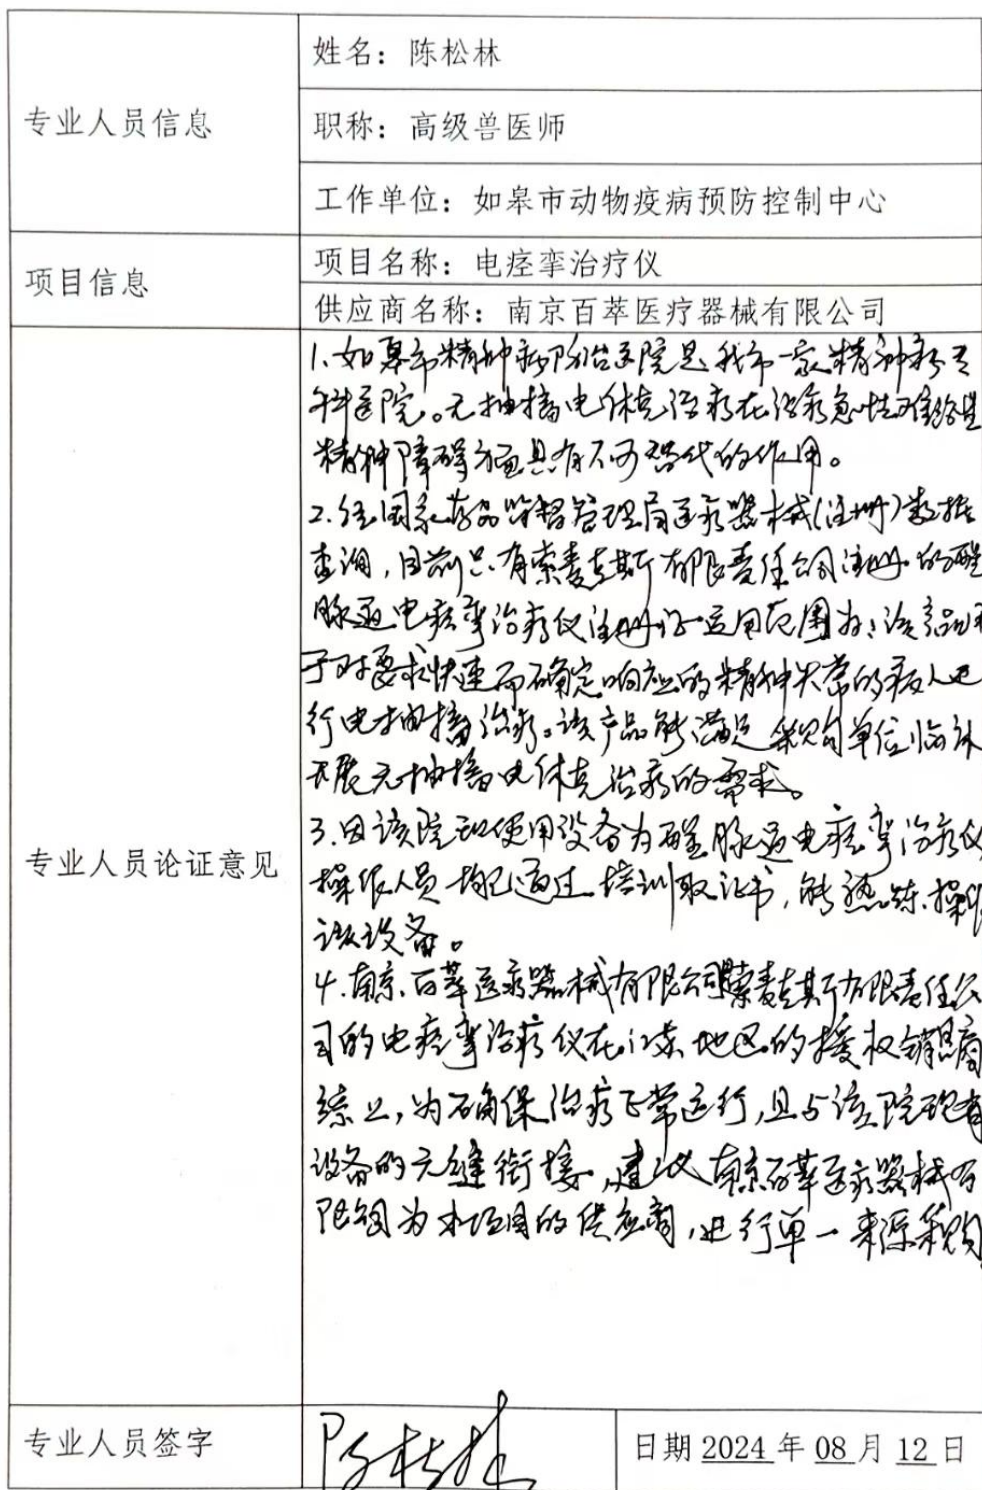 专业人员信息
姓名：陈松林
职称：高级兽医师
工作单位：如皋市动物疫病预防控制中心
项目信息
项目名称：电痉挛治疗仪
供应商名称：南京百萃医疗器械有限公司
专业人员论证意见
1.如皋市精神病防治医院是我市一家精神病专
科医院。无抽搐电休克治疗在治疗急性难治性
精神障碍方面具有不可替代的作用。
2.经国家药品监督管理局医疗器械(注册)数据
查询，目前只有索麦克斯有限责任公司注册的醒
脉通电痉挛治疗仪注册证适用范围为：该产品用
于对要求快速而确定响应的精神失常的病人进
行电抽搐治疗。该产品能满足采购单位临床
开展无抽搐电休克治疗的需求。
3.因该院现使用设备为醒脉通电痉挛治疗仪
操作人员均已通过培训取证书，能熟练操作
该设备。
4.南京百萃医疗器械有限公司是索麦克斯有限责任公
司的电痉挛治疗仪在江苏地区的授权销售商
综上，为确保治疗正常运行，且与该院现有
设备的无缝衔接，建议南京百萃医疗器械有
限公司为本项目的供应商，进行单一来源采购
专业人员签字
陈松林
日期 2024 年 08 月 12 日